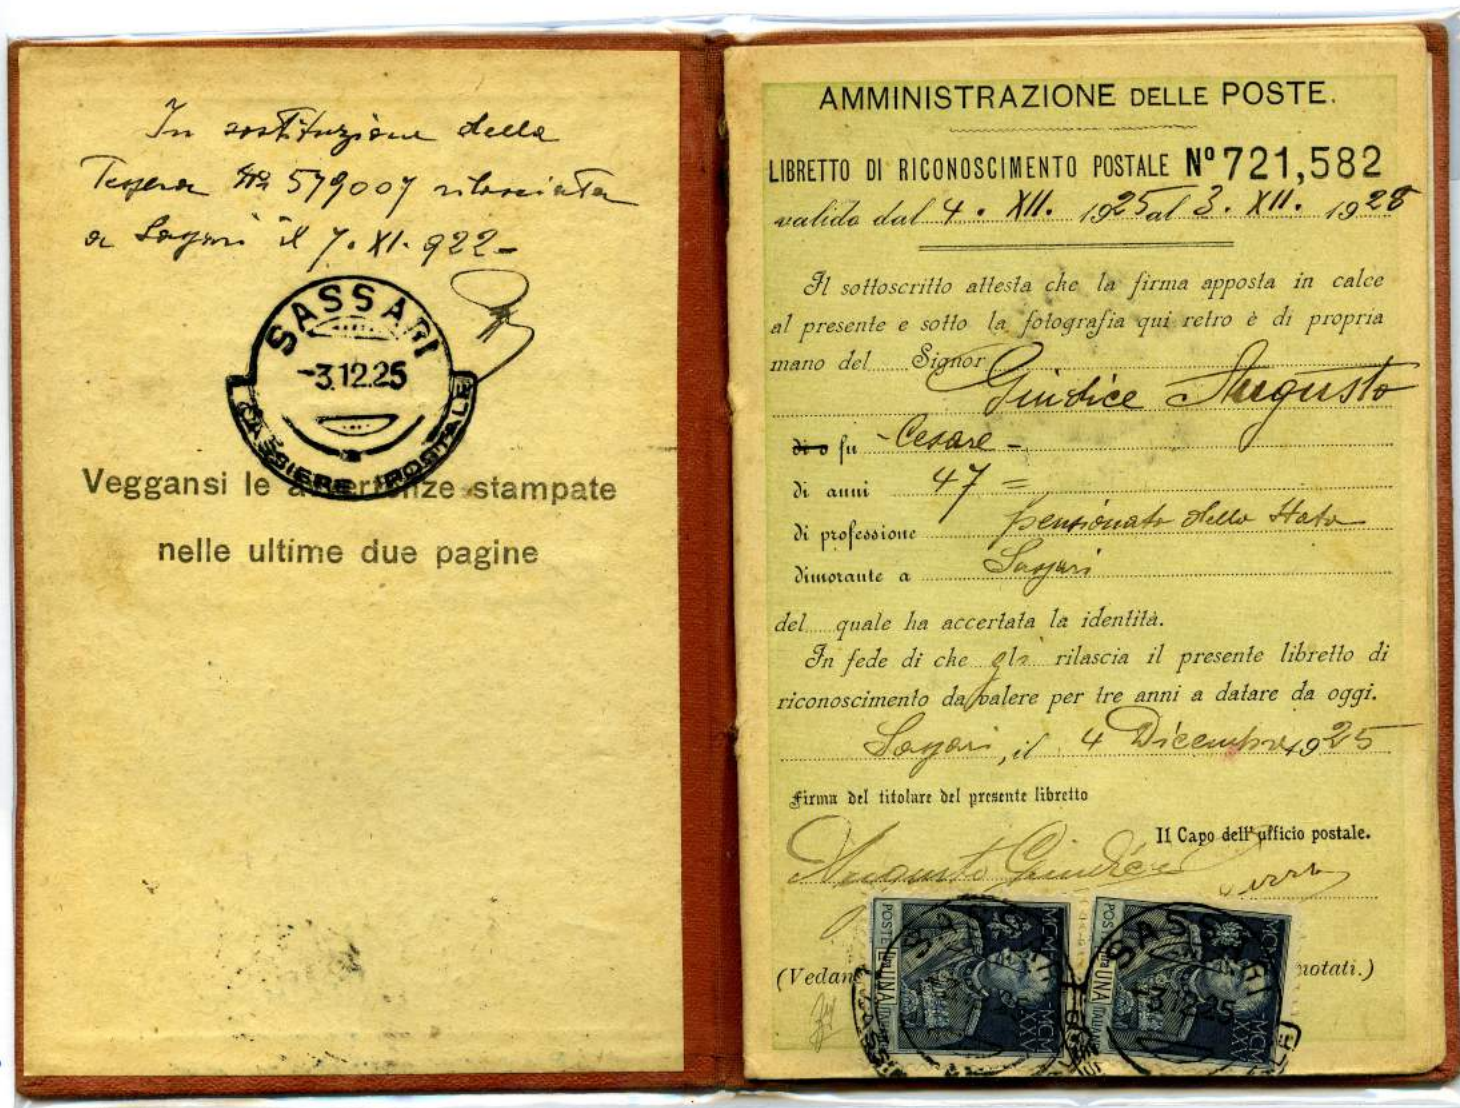 In sostituzione della
Tessera Nº 579007 rilasciata
a Sassari il 7. XI. 922 -
SASSARI
-3.12.25
CASSIERE POSTALE
Veggansi le avvertenze stampate
nelle ultime due pagine
AMMINISTRAZIONE DELLE POSTE.
LIBRETTO DI RICONOSCIMENTO POSTALE Nº 721,582
valido dal 4. XII. 1925 al 3. XII. 1928
Il sottoscritto attesta che la firma apposta in calce
al presente e sotto la fotografia qui retro è di propria
mano del Signor
Giudice Augusto
di o fu - Cesare -
di anni 47 =
di professione pensionato dello Stato
dimorante a Sassari
del quale ha accertata la identità.
In fede di che gli rilascia il presente libretto di
riconoscimento da valere per tre anni a datare da oggi.
Sassari, il 4 Dicembre 1925
Firma del titolare del presente libretto
Il Capo dell'ufficio postale.
Augusto Giudice
(Vedan
notati.)
POSTE
UNA
MCM
MCM
XXV
SASSARI
POS
UNA
MCM
MCM
XXV
SASSARI
-3.12.25